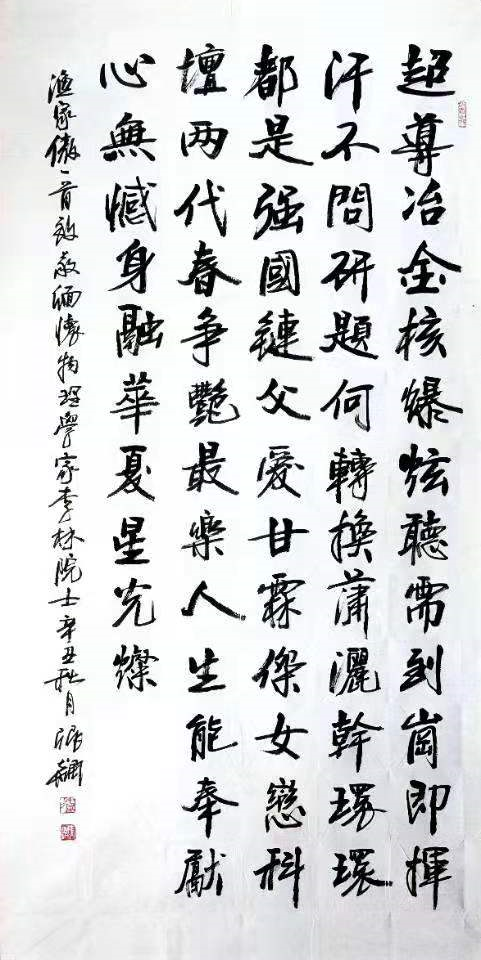 超導冶金核爆炫聽需到崗即揮
汗不問研題何轉換蒲灑幹環環
都是强國鏈父愛甘霖傑女戀科
壇两代春争艷最樂人生能奉獻
心無憾身融華夏星光燦
渔家傲一首致敬緬懷物理學家李林院士辛丑秋月